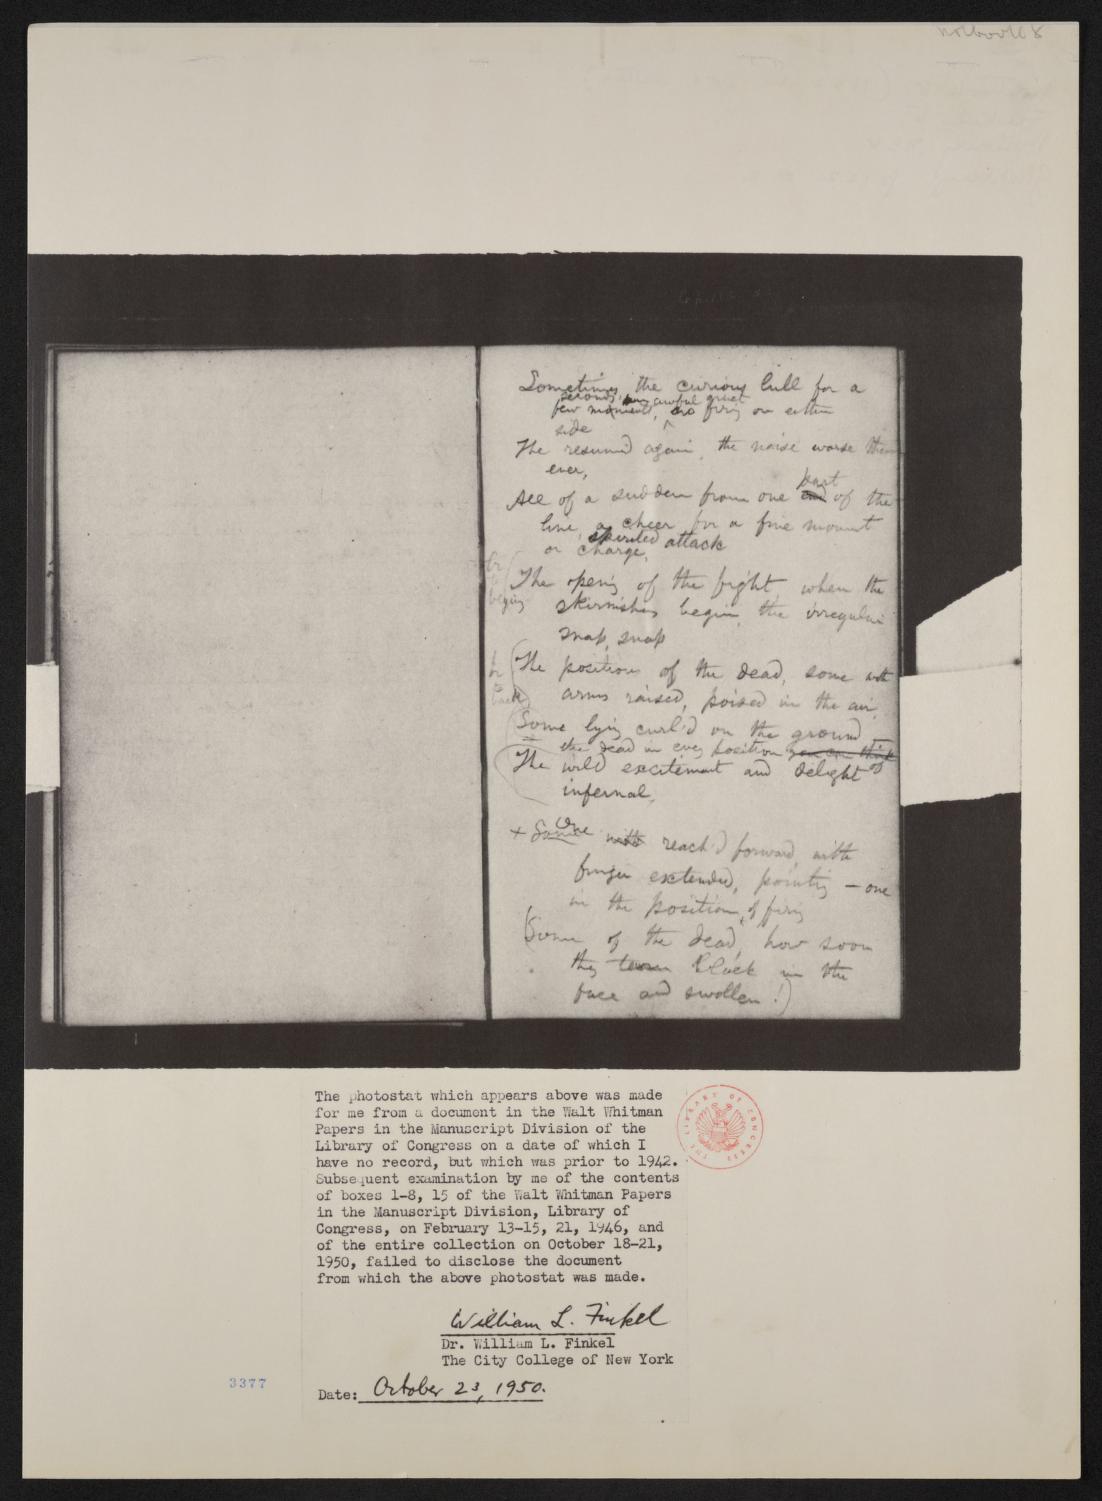 Sometimes the curious lull for a
seconds, an awful quiet
few moments, no firing on either
side
The resumed again, the noise worse than
ever,
part
All of a sudden from one end of the
line, a cheer for a fine movement
spirited attack
or charge,
The opening of the fight when the
skirmishers begin, the irregular
snap, snap
The positions of the dead, some with
arms raised, poised in the air,
Some lying curl'd on the ground
the dead in every position you can think
of
The wild excitement and delight
infernal,
One
+ Some with reach'd forward, with
finger extended, pointing – one
in the position of firing
(Some of the dead, how soon
they turn black in the
face and swollen!)
The photostat which appears above was made
for me from a document in the Walt Whitman
Papers in the Manuscript Division of the
Library of Congress on a date of which I
have no record, but which was prior to 1942.
Subsequent examination by me of the contents
of boxes 1-8, 15 of the Walt Whitman Papers
in the Manuscript Division, Library of
Congress, on February 13-15, 21, 1946, and
of the entire collection on October 18-21,
1950, failed to disclose the document
from which the above photostat was made.
THE LIBRARY OF CONGRESS
William L. Finkel
Dr. William L. Finkel
The City College of New York
3377
Date: October 23, 1950.